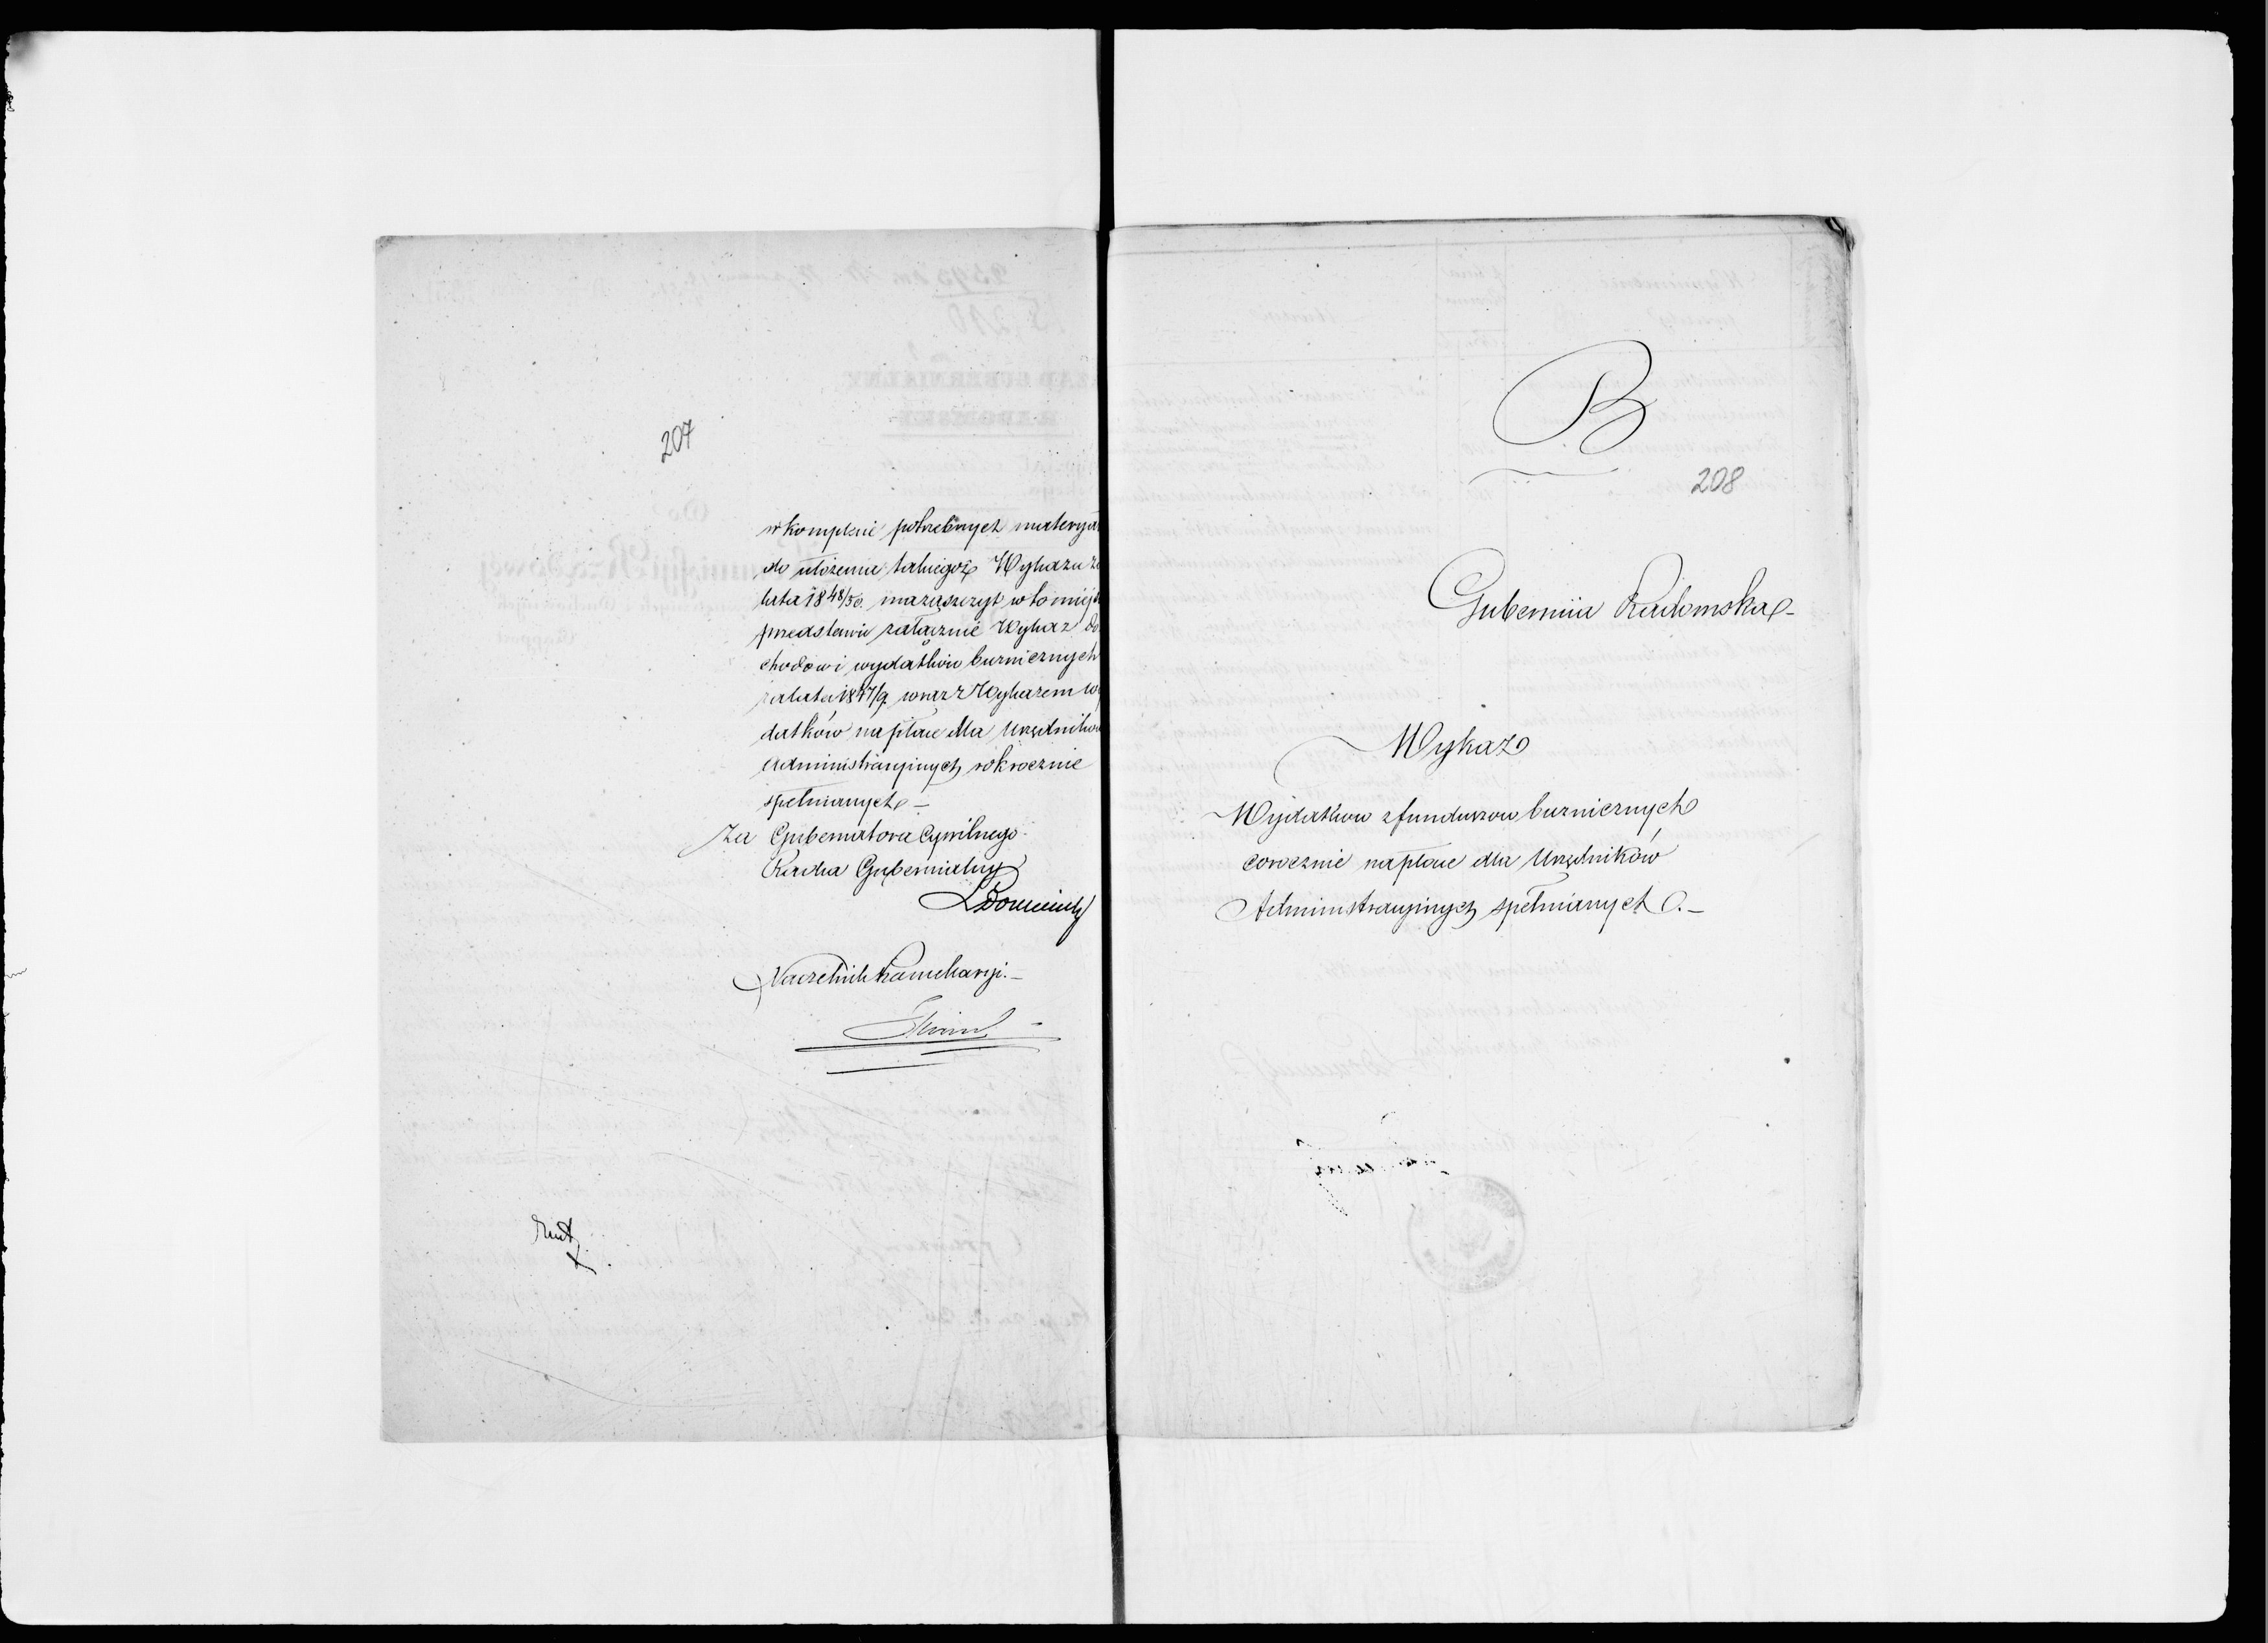 207
w komplecie potrzebnych materya
do ułożenia takiegoż Wykazu z
lata 1848/50. ma zaszczyt w to miejs
przedstawić załącznie Wykaz do
chodów i wydatków bużniczych
za lata 1847/9. wraz z Wykazem wy
datków na płace dla Urzędników
administracyjnych rokrocznie
spełnianych –
Za Gubernatora Cywilnego
Radca Gubernialny
Naczelnik Kancellaryi. –
B
208
Gubernia Radomska –
Wykaz
Wydatków z funduszów bużniczych
corocznie na płace dla Urzędników
Administracyjnych spełnianych. –